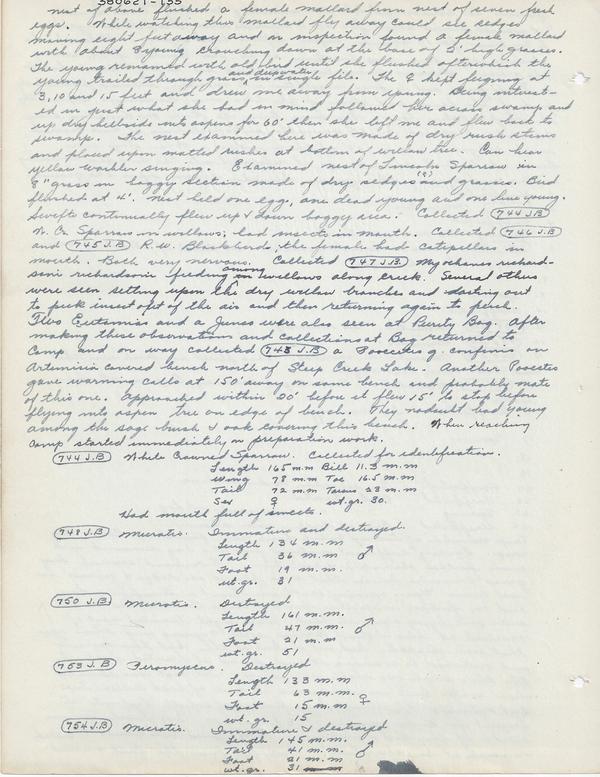 380621-155
nest of above flushed a female mallard from nest of seven fresh
eggs. While watching this mallard fly away could see sedges
moving eight feet away and on inspection found a female mallard
with about 8 young crouching down at the base of 2' high grasses.
The young remained with old bird until she flushed afterwhich the
young trailed through grass and driftwater in single file. The ♀ kept feigning at
3, 10 and 15 feet and drew me away from young. Being interest-
ed in just what she had in mind followed her across swamp and
up dry hillside into aspens for 60' then she left me and flew back to
swamp. The nest examined here was made of dry rush stems
and placed upon matted rushes at bottom of willow tree. Can hear
yellow warbler singing. Examined nest of Lincoln Sparrow in
8" grass in boggy section made of dry sedges (?) and grasses. Bird
flushed at 4'. nest held one egg, one dead young and one live young.
Swifts continually flew up & down boggy area. Collected 744 J.B
W. Cr. Sparrow in willows; had insects in mouth. Collected 746 J.B
and 745 J.B R.W. Blackbirds; the female had catepillars in
mouth. Both very nervous. Collected 747 J.B. Myochanes richard-
soni richardsonii feeding among willows along creek. Several others
were seen setting upon the dry willow branches and darting out
to pick insect out of the air and then returning again to perch.
Two Eutamias and a Junco were also seen at Bog. After
making these observations and collections at Bog returned to
Camp and on way collected 748 J.B a Pooecetes g. confinis on
Artemisia covered bench north of Steep Creek Lake. Another Pooecetes
gave warning calls at 150' away on same bench and probably mate
of this one. Approached within 20' before it flew 15' to stop before
flying into aspen tree on edge of bench. They nodoubt had young
among the sage brush & oak covering this bench. When reaching
camp started immediately on preparation work.
744 J.B White Crowned Sparrow. Collected for identification.
Length 165 m.m Bill 11.3 m.m
Wing 78 m.m Toe 16.5 m.m
Tail 72 m.m Tarsus 23 m.m
Sex ♀ wt.gr. 30.
Had mouth full of insects.
748 J.B Microtis. Immature and destroyed.
Length 134 m.m
Tail 36 m.m ♂
Foot 19 m.m.
wt.gr. 31
750 J.B. Microtis. Destroyed
Length 161 m.m.
Tail 47 m.m. ♂
Foot 21 m.m
wt.gr. 51
753 J.B. Peromyscus. Destroyed
Length 133 m.m
Tail 63 m.m. ♀
Foot 15 m.m
wt.gr. 15
754 J.B Microtis. Immature & destroyed
Length 145 m.m.
Tail 41 m.m. ♂
Foot 21 m.m
wt.gr. 31